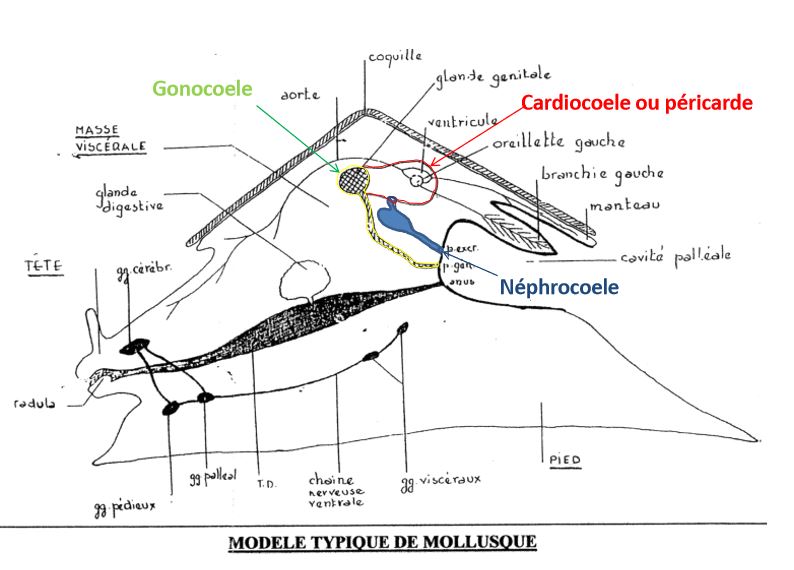 coquille
glande genitale
Gonocoele
aorte
Cardiocoele ou péricarde
ventricule
MASSE
VISCÉRALE
oreillette gauche
branchie gauche
glande
digestive
manteau
p.excr.
cavité palléale
TÊTE
gg.cérébr.
p.gén.
anus
Néphrocoele
radula
PIED
gg palléal
T.D.
chaine
nerveuse
ventrale
gg.viscéraux
gg.pédieux
MODELE TYPIQUE DE MOLLUSQUE